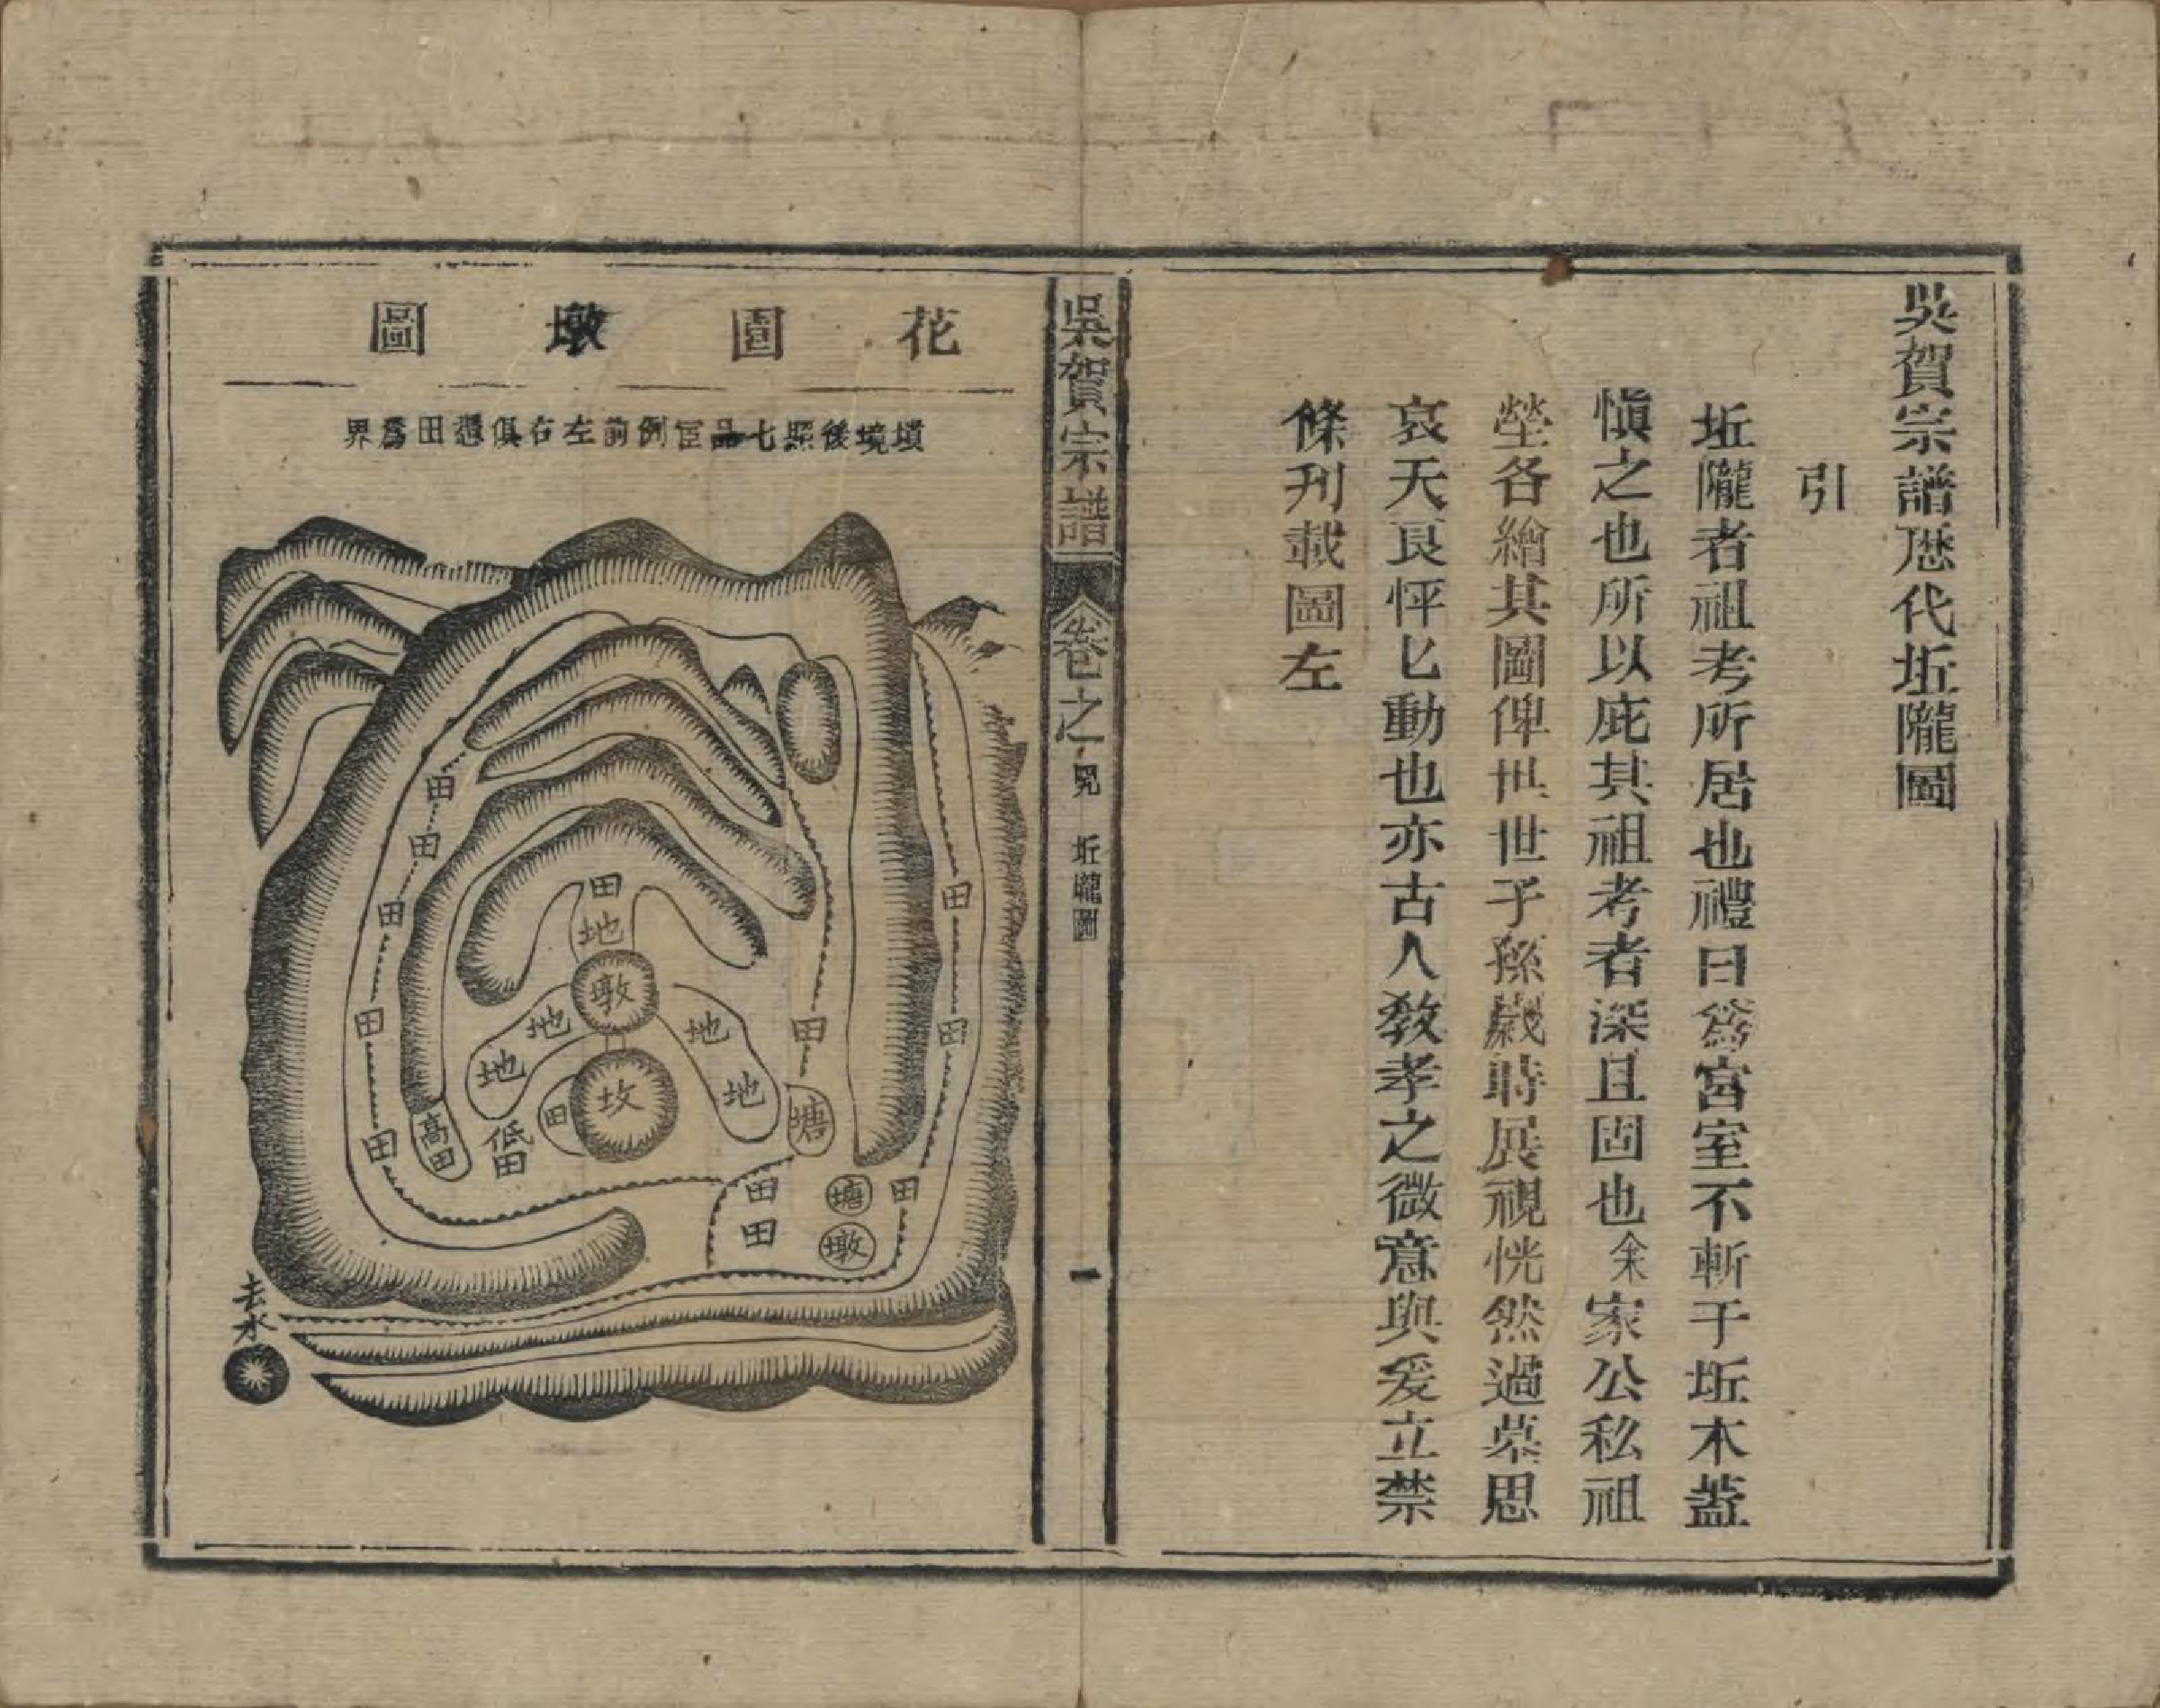 吳賀宗譜歴代坵隴圖
引
坵隴者祖考所居也禮曰爲宮室不斬于坵木蓋
愼之也所以庇其祖考者深且固也余家公私祖
塋各繪其圖俾世世子孫歲時展視恍然過墓思
哀天良怦匕動也亦古人敎孝之微意與爰立禁
條刋載圖左
吳賀宗譜
卷之
坵隴圖
一
花園墩圖
墳境後照七品官例前左右俱憑田爲界
田
田
田
田
田
田
地
墩
地
地
地
地
坟
田
高田
低田
田
田
田
塘
塘
墩
田
田
田
去水